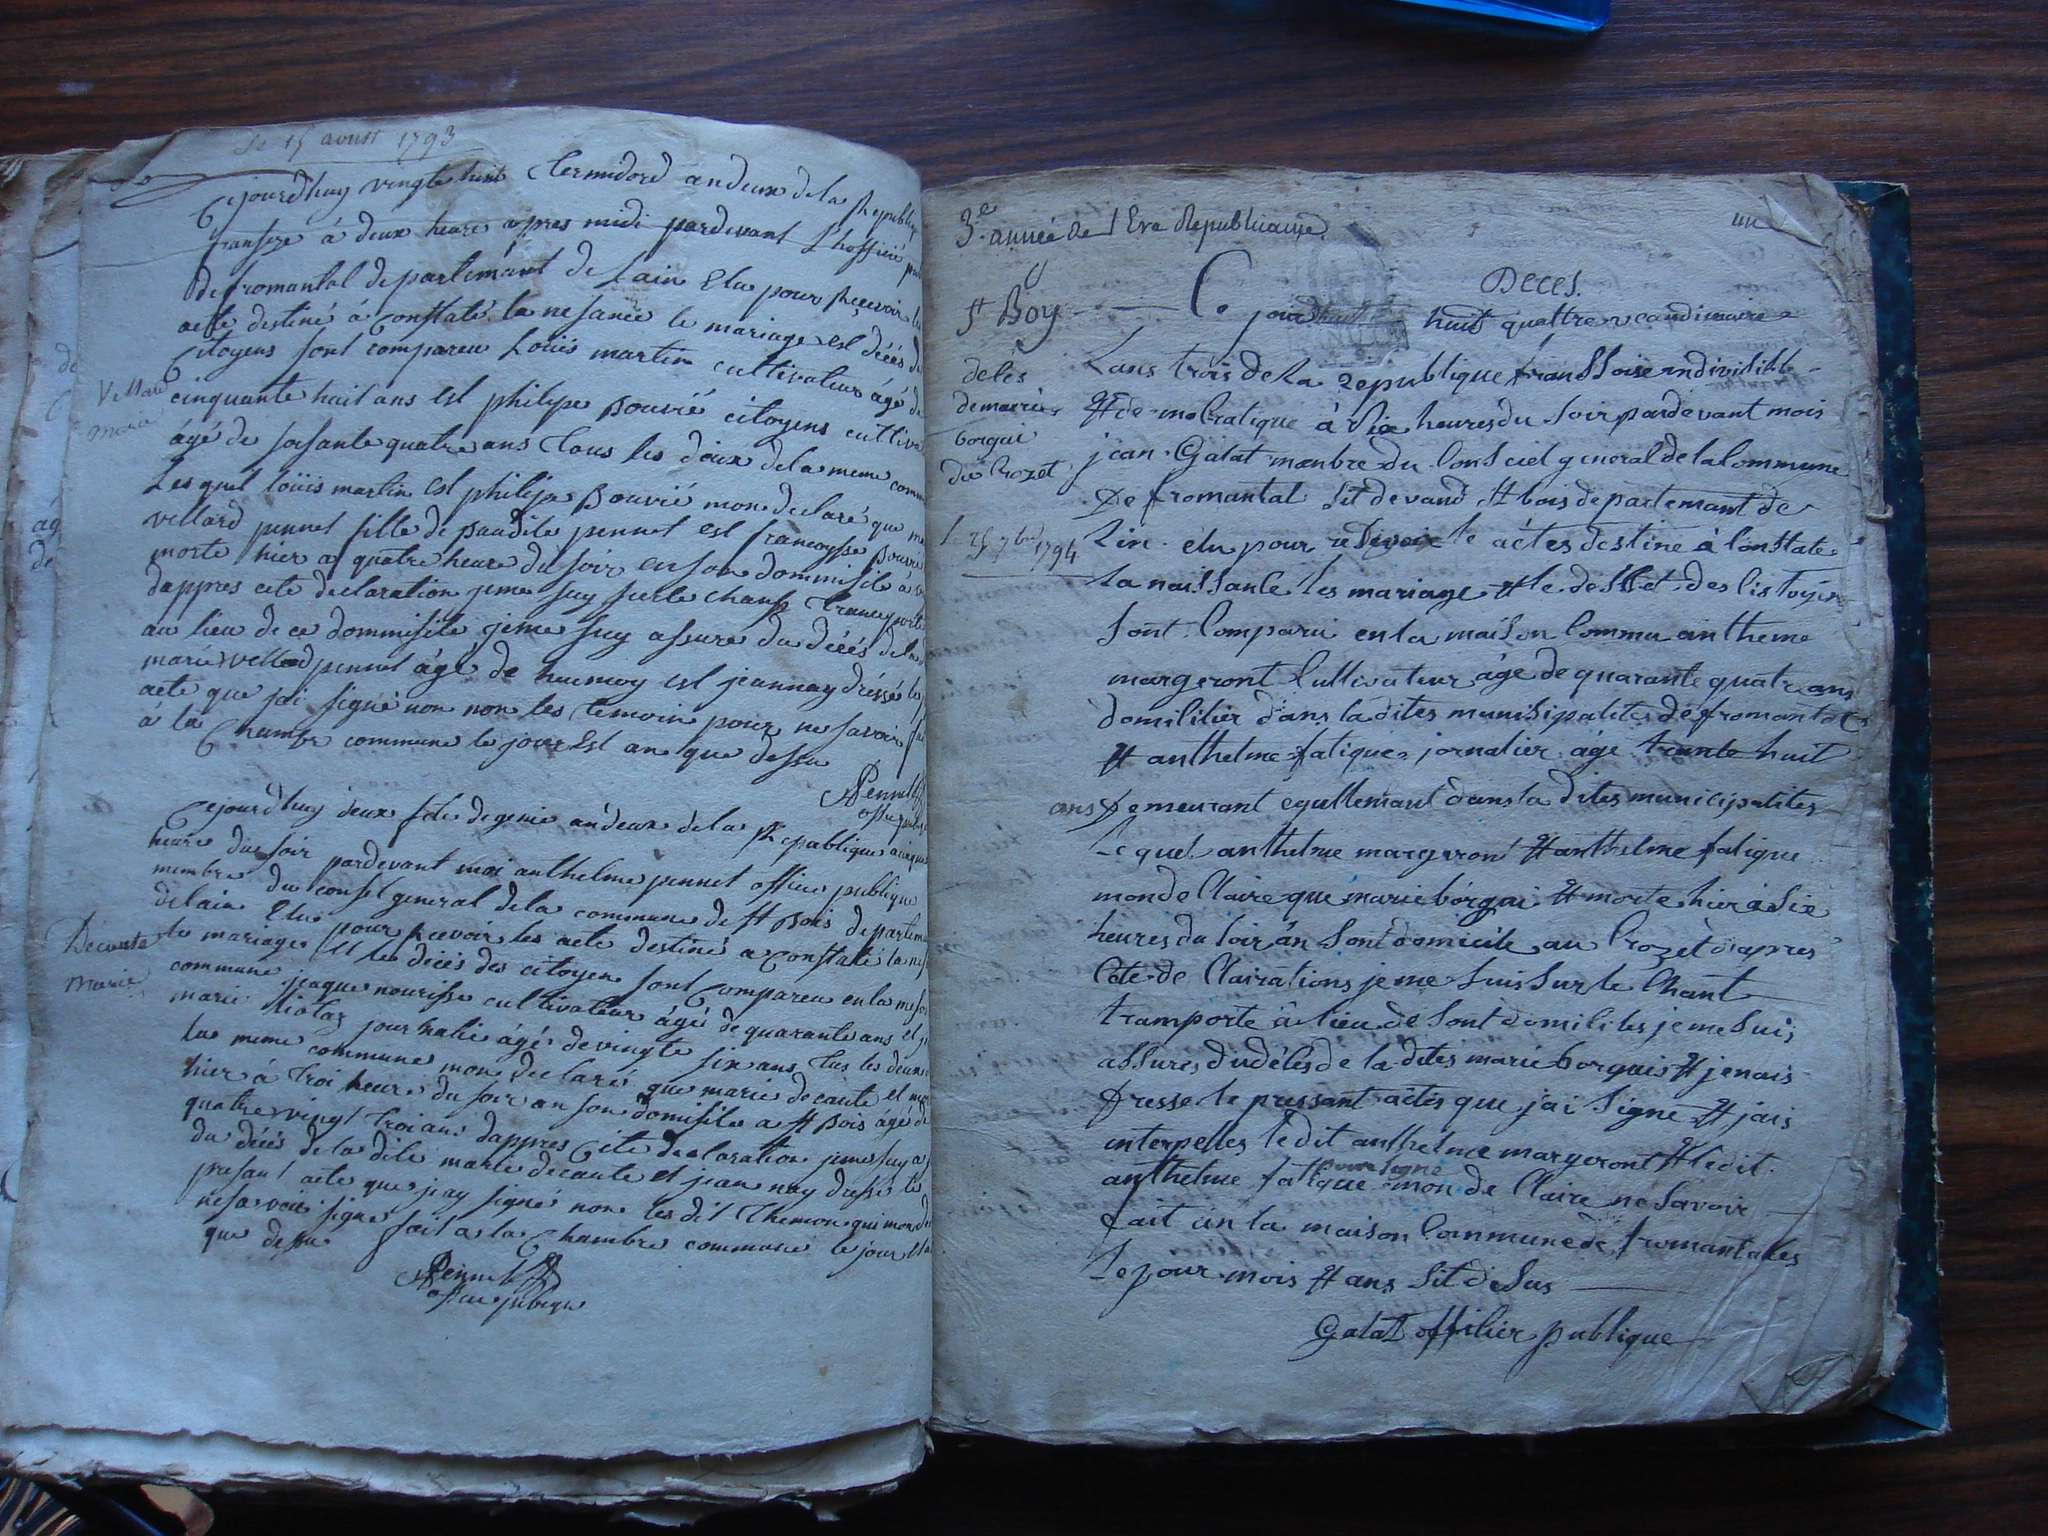 Le 15 avust 1793
Cejourdhuy vingte huit termidord an deux de la Republiq
franseze à deux heure apres midi pardevant L'hofficié
de fromantal departemant de Lain Elu pour Recevoir les
acte destiné à Constaté la nesance le mariage est décés de
Citoyens sont compareu Loüis martin cultivateur ágé de
Vellard
marie
cinquante huit ans est philipe Bouvié citoyens cultiva
ágé de soisante quatre ans tous les deux de la meme comm
Les quel loüis martin est philipe Bouvié mon declaré que
vellard pennet fille de pennet est francoysse Bouvié
morte hier a quatre heure du soir en son dommisile à
dappres cete declaration jeme suy sur le champ transporté
au lieu de ce dommisile jeme suy assure du décés de la
marie vellard pennet ágé de est jeannay dréssé le
acte que jai signé non non les temoin pour ne savoir
à la Chambr commune le jour Est an que dessu
Pennet
offi publiqe
Cejourdhuy deux an deux de la Republique
heure du soir pardevant moi anthelme pennet officié publique
membre du consel general de la commune de St Bois departem
delain Elu pour Recevoir les acte destiné a Constaté la
Decante
marie
le mariage Et les décés des citoyen sont Compareu en la
commune jaque nourisse cultivateur ágé de quarante ans et
marie journalié ágé de vingte six ans tus les deux
la meme commune mon declaré que marie decante et
hier à troi heure du soir an son domisile a St Bois ágé de
quatre vingt troi ans dappres Cete declaration jeme suy
du décés de la dite marie decante et jean nay dréssé le
presant acte que jay signé non les dit themon qui mon
ne savoir signe fait a la Chambre commune le jour
que dessu
Pennet
publique
3.e année de l'Ere Republicaine
un
Deces.
St Boy
C jour huit quattre vandimaire
délés
de marie
borgai
du Crozet
Lans trois de la Republique franssoise indivisible
St de mocratique à Six heures du Soir pardevant mois
jean Galat menbre du Consciel general de la Commune
De fromantal Sit devand St bois departemant de
le 25 7bre 1794
Lin élu pour resevoir le actes destine à Constate
la naissanse les mariage St le dessét des Sistoyin
Sont Comparu en la maison Commu antheme
margeront Cultivateur áge de quarante quatr ans
domicilier dans la dites munisipalites de fromantal
St anthelme fatique jornalier áge trante huit
ans Demeurant egallemant dans la dites municipalites
Le quel anthelme margeront St anthelme fatique
mon de Claire que marie borgai St morte hier à Six
heures du Soir án Sont domicile au Crozet d'apres
Cete de Clairations je me Suis Sur le Chant
tramporte à lieu de Sont domicilis je me Suis
assures dudéles de la dites marie borguis St jenais
Dresse le pressant actes que jai Signe St jais
interpelles ledit anthelme margeront St ledit
anthelme fatique mon de Claire ne Savoir
pour signe
fait an la maison Commune de fromantales
Le jour mois St ans Sit desus
Galat offilier publique